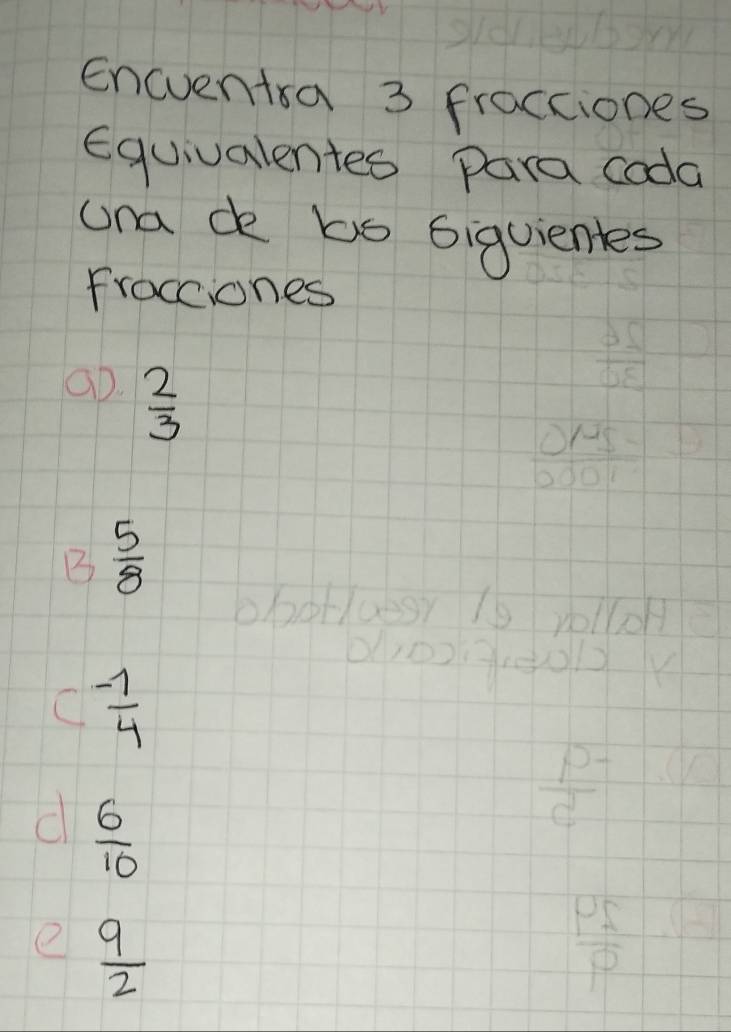 Encuentra 3 fracciones
Equivalentes Para cada
una de las siguientes
Fracciones
a). 2/3
B 5/8
C -1/4
d 6/10
e 9/2